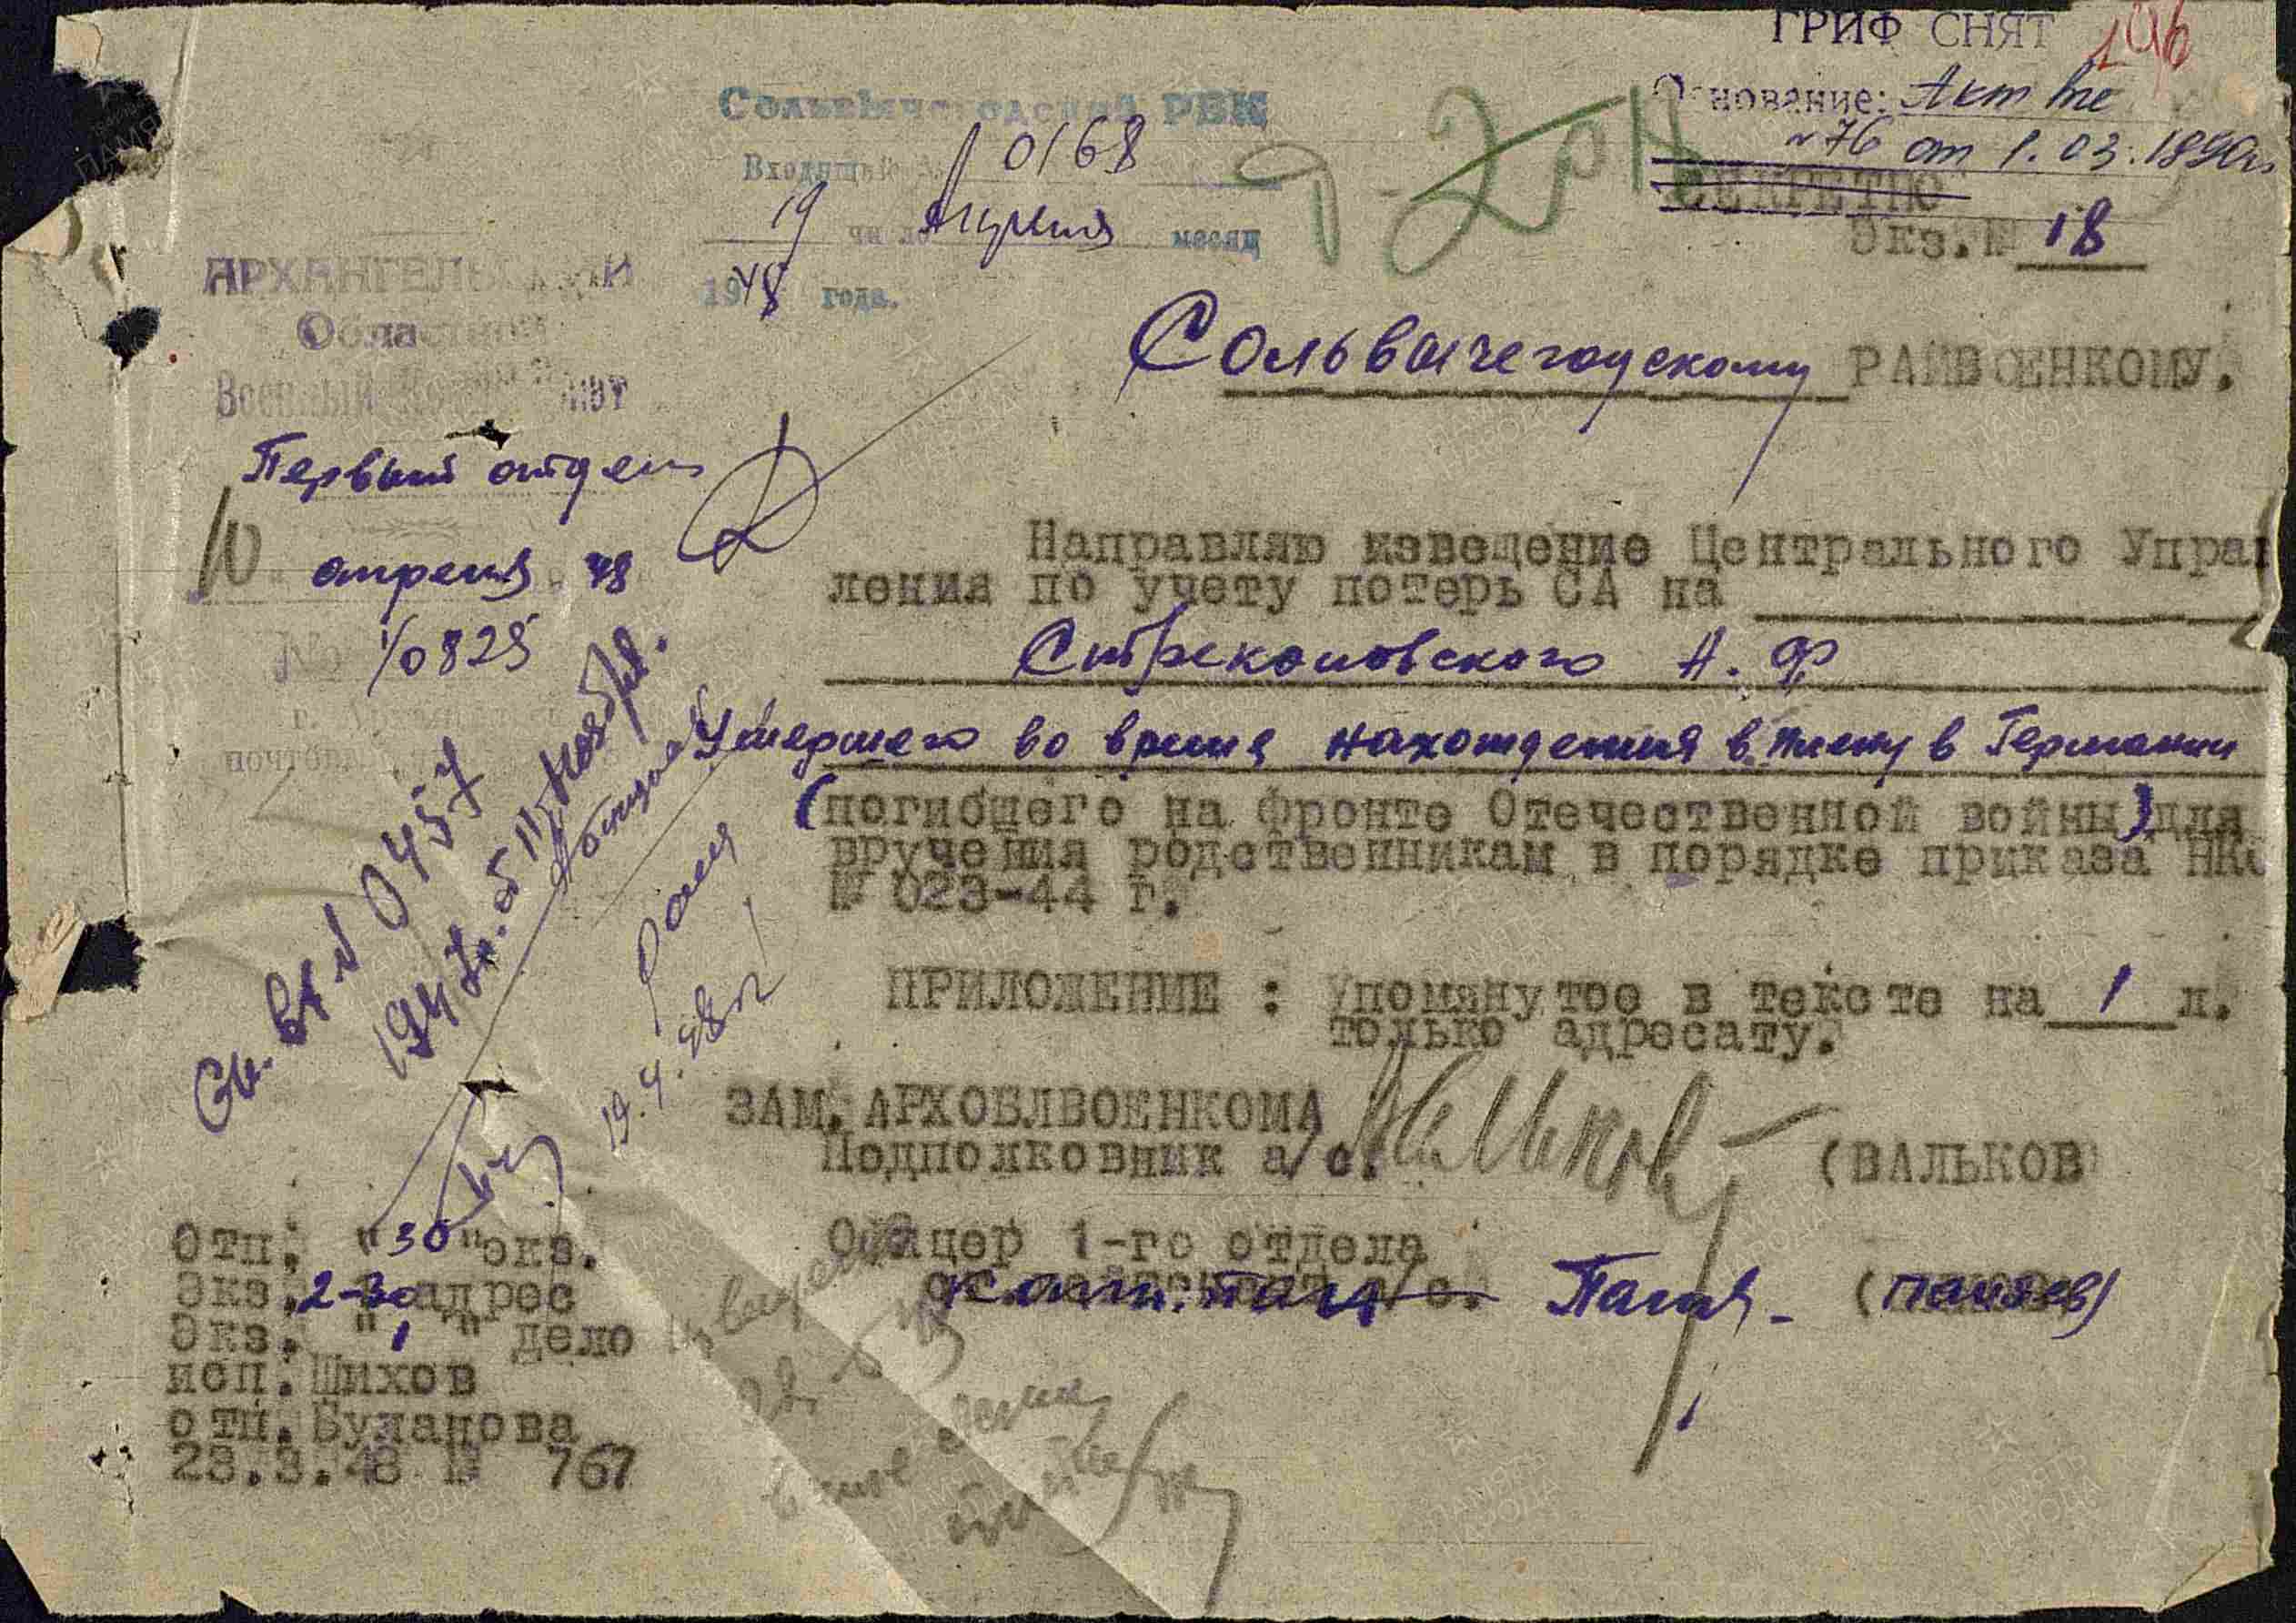 ГРИФ СНЯТ
196
Основание: Акт
№76 от 1.03.1990г
СЕКРЕТНО
Экз.№ 18
Сольвычегодский РВК
Входящий № 0168
19 число Апреля месяц
1948 года.
АРХАНГЕЛЬСКИЙ
Областной
Военный Комиссариат
Первый отдел
10 апреля 48
№ 1/0825
Сольвычегодскому РАЙВОЕНКОМУ.
Направляю извещение Центрального Управ
ления по учету потерь СА на
Стрекаловского А. Ф
Умершего во время нахождения в плену в Германии
(погибшего на фронте Отечественной войны) для
вручения родственникам в порядке приказа НКО
№ 023-44 г.
См. вх № 0457
1947г. от 11 ноября.
19.4.48г
ПРИЛОЖЕНИЕ : Упомянутое в тексте на 1 л.
только адресату.
ЗАМ. АРХОБЛВОЕНКОМА
Подполковник а/с. (ВАЛЬКОВ)
Офицер 1-го отдела
Отп. "30"экз.
Экз. 2-30 адрес
Экз. "1" дело
исп. Шихов
отп. Буланова
28.3.48 № 767